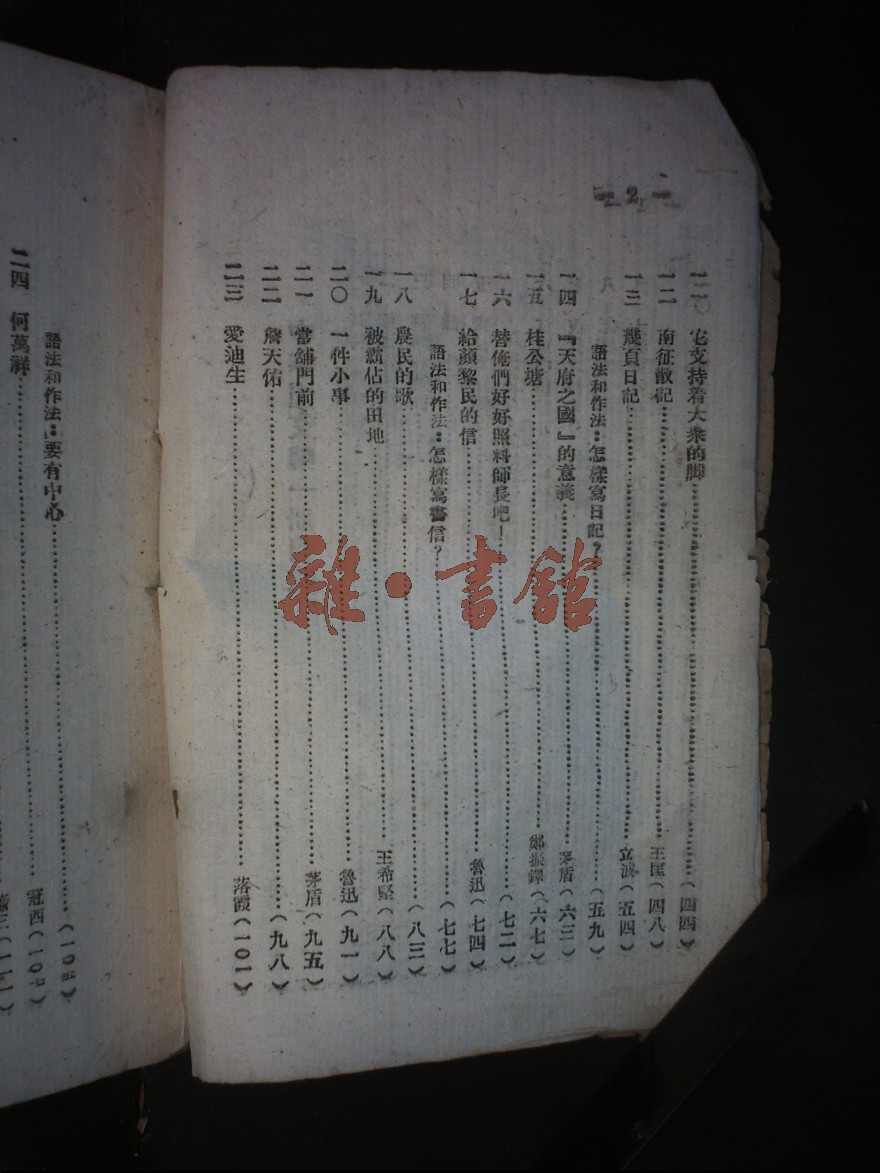 — 2 —
一一 它支持着大衆的脚……(四四)
一二 南征散記……王匡(四八)
一三 幾頁日記……立波(五四)
語法和作法：怎樣寫日記？……(五九)
一四 『天府之國』的意義……茅盾(六三)
一五 桂公塘……鄭振鐸(六七)
一六 替俺們好好照料師長吧！……(七二)
一七 給顏黎民的信……魯迅(七四)
語法和作法：怎樣寫書信？……(七七)
一八 農民的歌……(八三)
一九 被霸佔的田地……王希堅(八八)
二〇 一件小事……魯迅(九一)
二一 當舖門前……茅盾(九五)
二二 詹天佑……(九八)
二三 愛迪生……落霞(一〇一)
語法和作法：要有中心……
二四 何萬祥……冠西
雜·書館